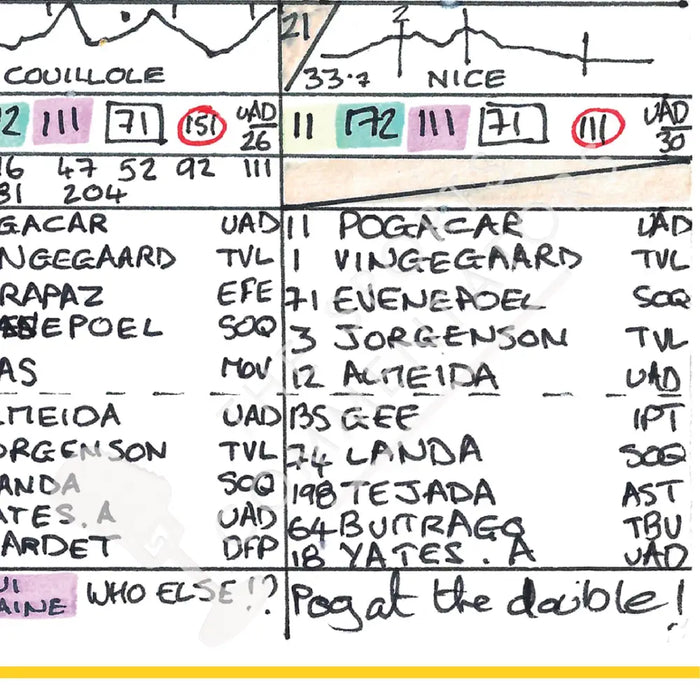 21
2
COUILLOLE
33.7 NICE
2 111 71 151 UAD 26
11 172 111 71 111 UAD 30
16 47 52 92 111
31 204
GACAR UAD
11 POGACAR UAD
NGEGAARD TVL
1 VINGEGAARD TVL
RAPAZ EFE
71 EVENEPOEL SOQ
EPOEL SOQ
3 JORGENSON TVL
AS MOV
12 ALMEIDA UAD
LMEIDA UAD
135 GEE IPT
ORGENSON TVL
74 LANDA SOQ
ANDA SOQ
198 TEJADA AST
ATES.A UAD
64 BUITRAGO TBU
ARDET DFP
18 YATES.A UAD
UI
AINE
WHO ELSE!?
Pog at the double!